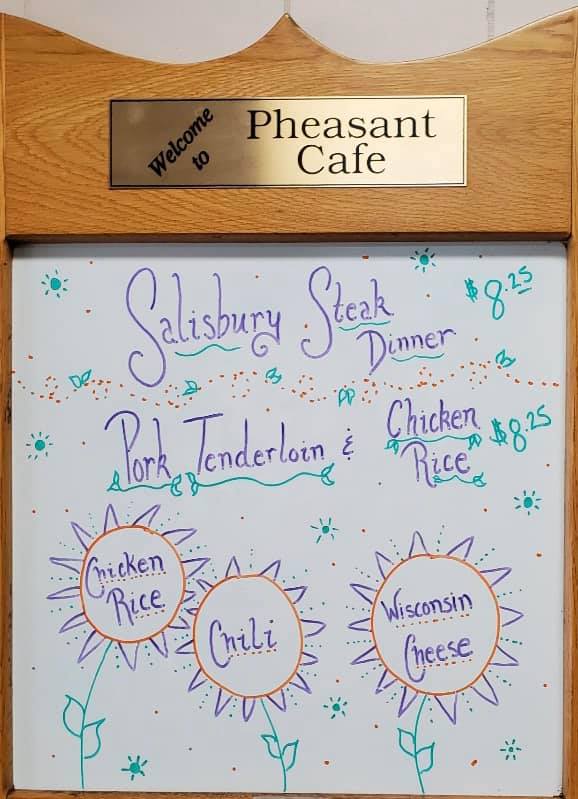 Welcome to
Pheasant
Cafe
Salisbury Steak $8.25
Dinner
Pork Tenderloin & Chicken $8.25
Rice
Chicken
Rice
Chili
Wisconsin
Cheese